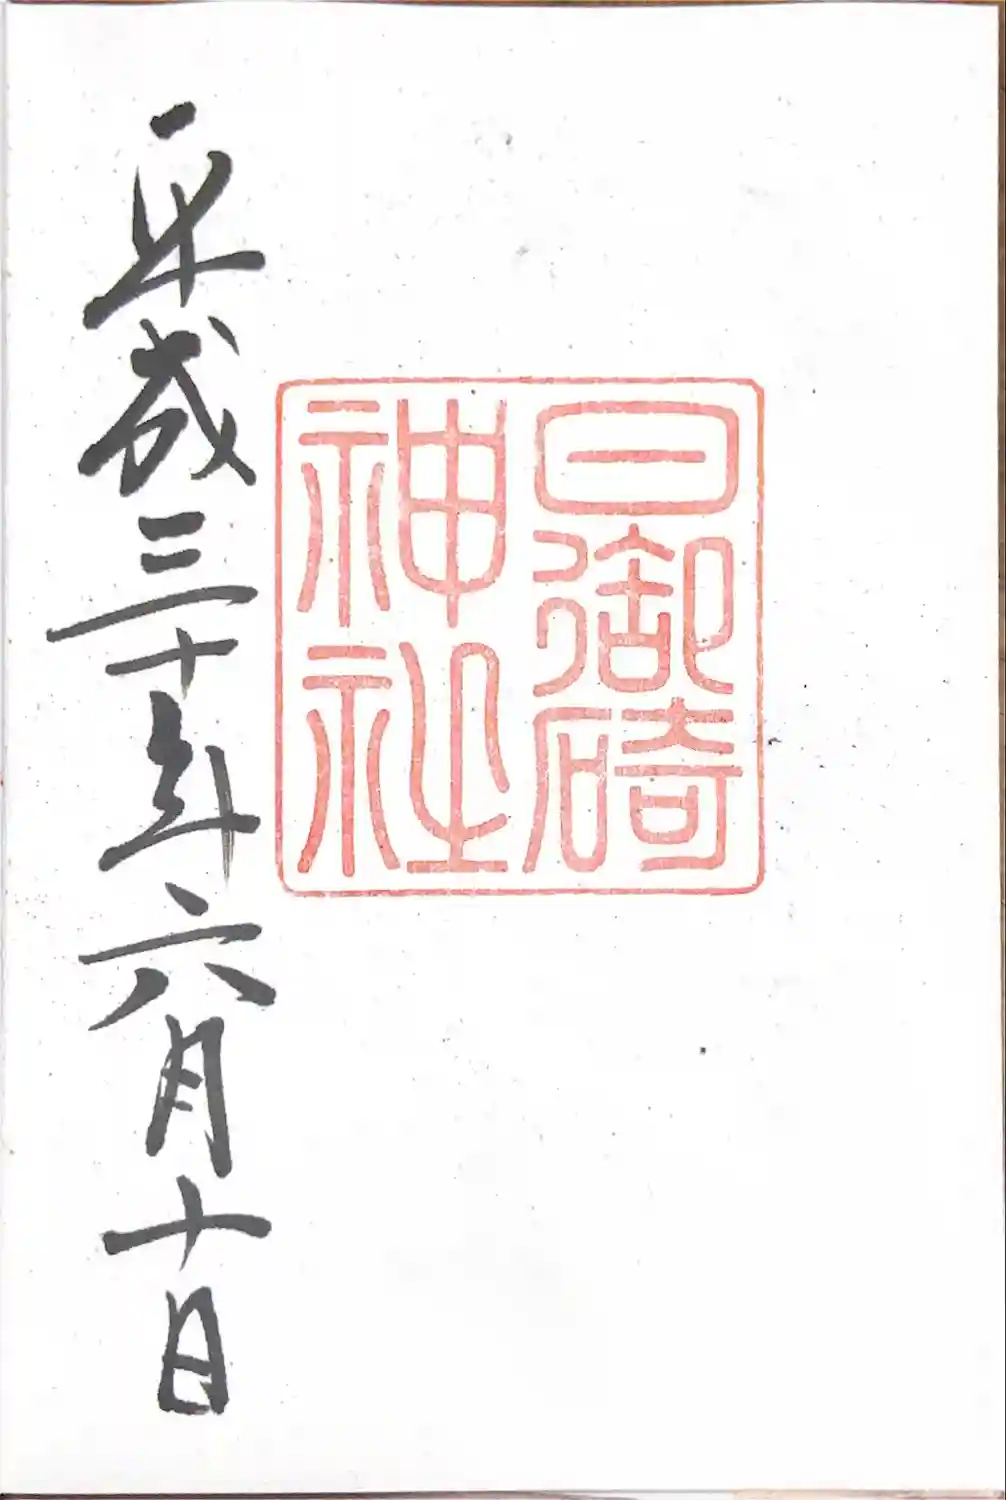 日御碕
神社
平成三十年六月十日